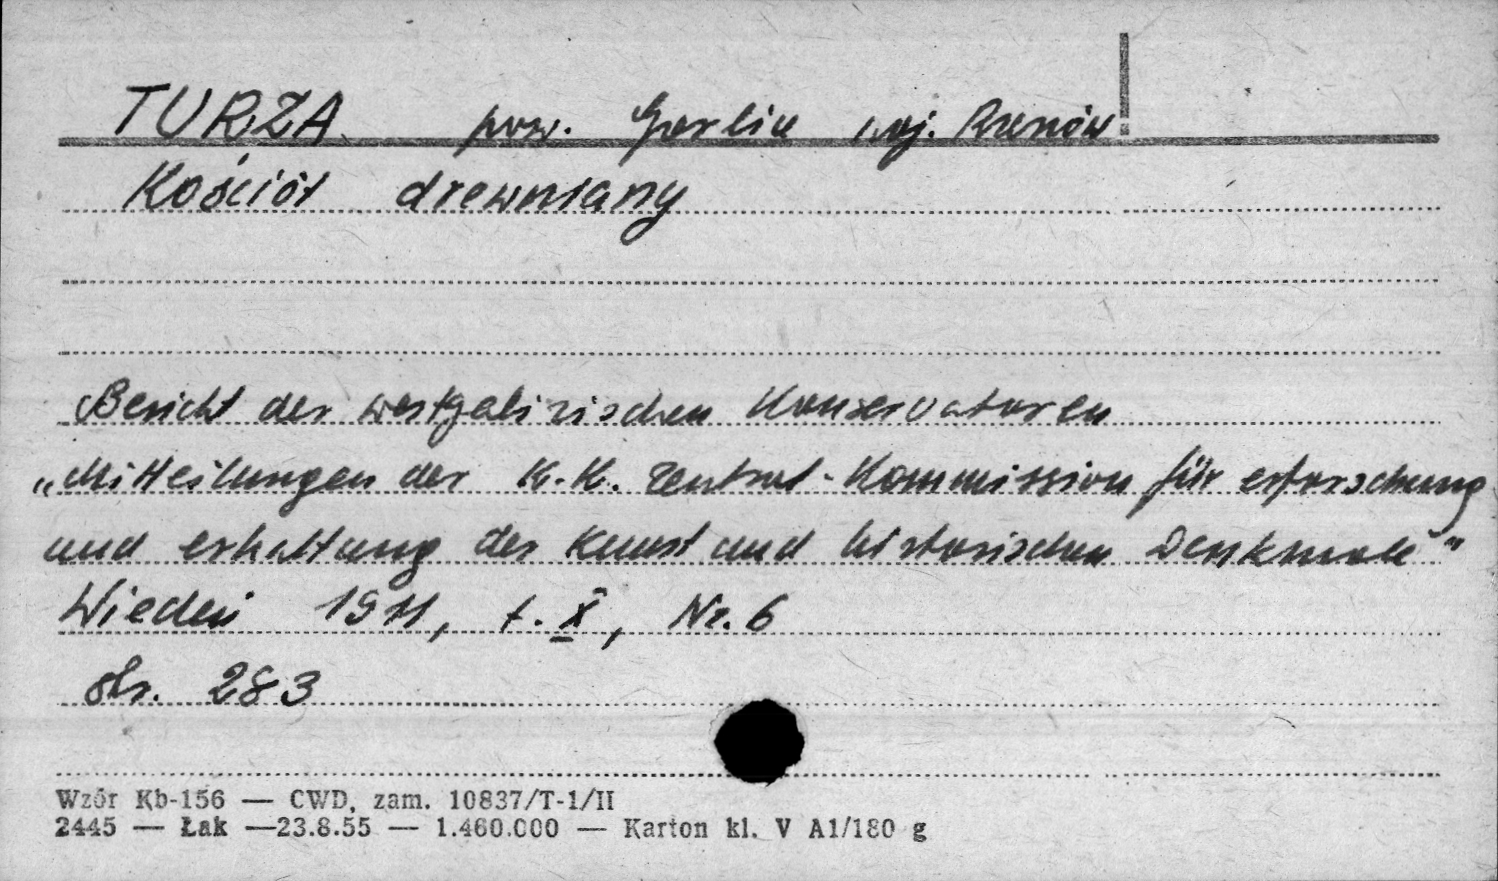 TURZA pow. Gorlice woj. Rzeszów
Kościół drewniany
Bericht der westgalizischen Konservatoren
„Mitteilungen der K.K. Zentral-Kommission für erforschung
und erhaltung der Kunst und historischen Denkmale"
Wiedeń 1911, t. X, Nr. 6
str. 283
Wzór Kb-156 — CWD, zam. 10837/T-1/II
2445 — Łak —23.8.55 — 1.460.000 — Karton kl. V A1/180 g